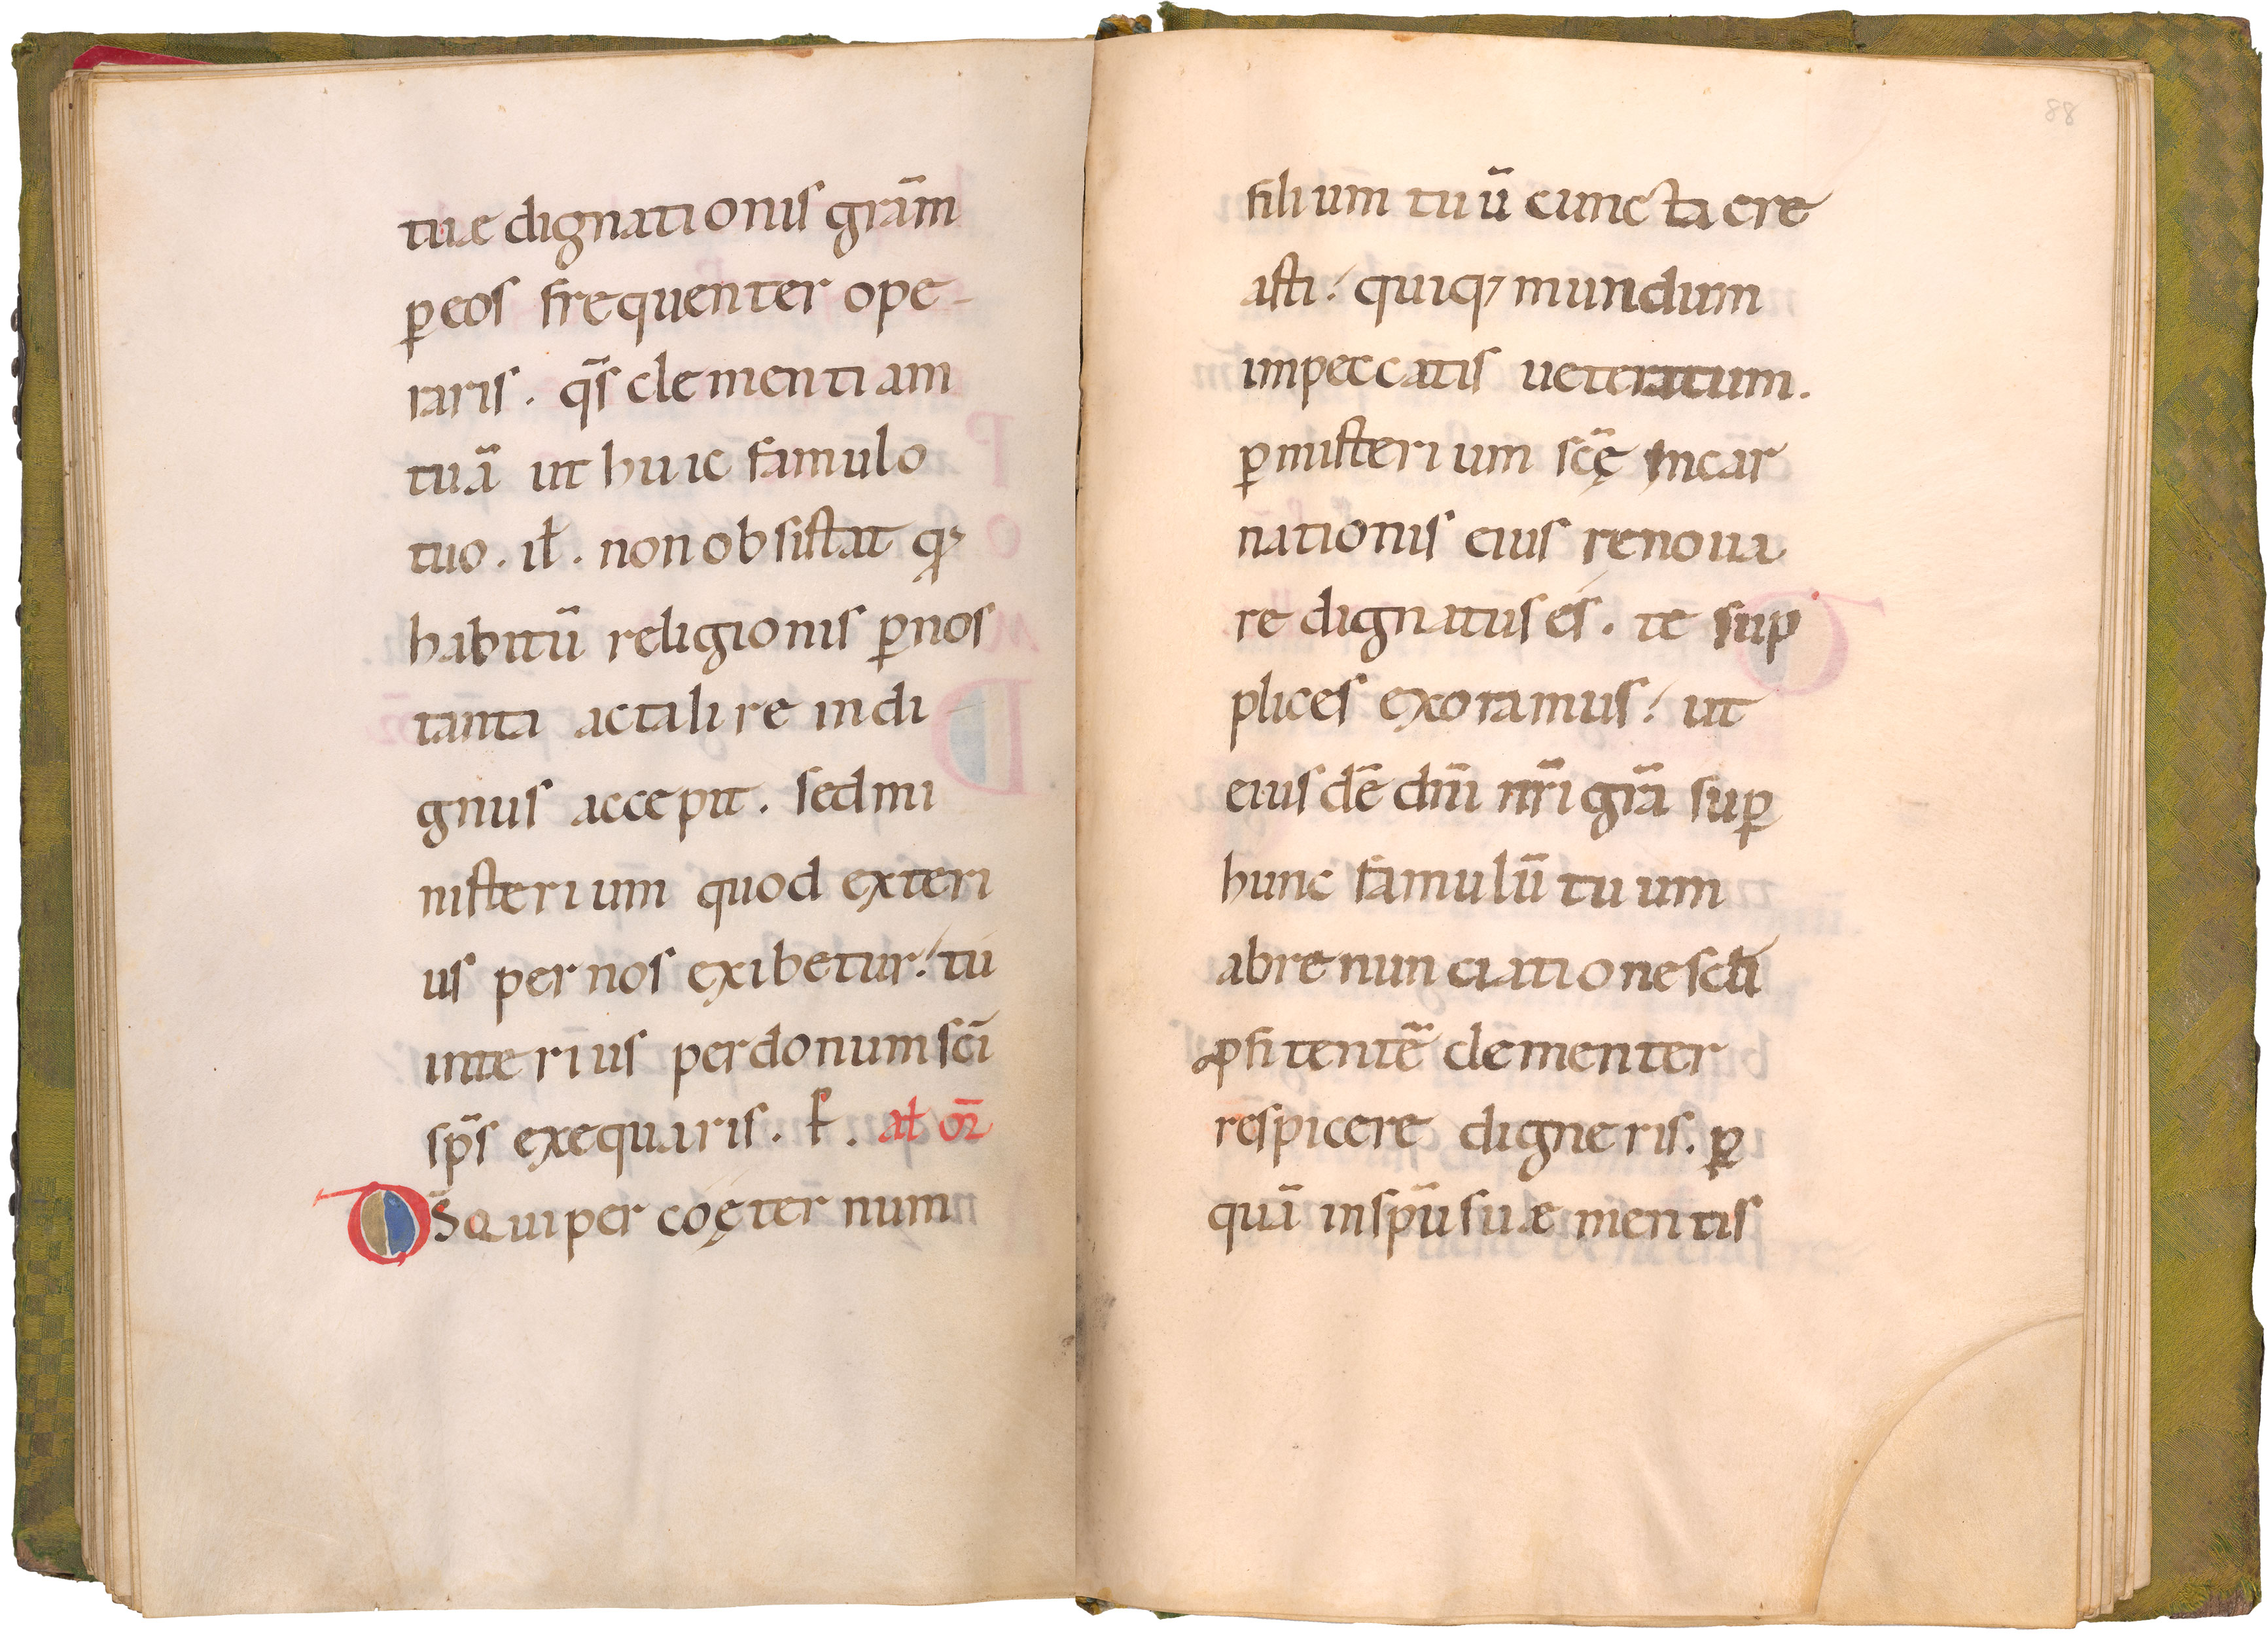 tuae dignationis grām
ꝑ eos frequenter ope-
raris. q̄s clementiam
tuā ut huic famulo
tuo. ił. non obsistat qꝫ
habitū religionis ꝑ nos
tanta ac tali re indi
gnus accepit. sed mi
nisterium quod exteri
us per nos exibetur. tu
interius per donum sc̄i
sp̄s exequaris. ꝑ. at or̄
DS qui per coęternum
88
filium tuū cuncta cre
asti. quiqꝫ mundum
impeccatis ueteratum.
ꝑ misterium sc̄ę incar
nationis eius renoua
re dignatus es. te sup
plices exoramus. ut
eiusdē dn̄i nr̄i grā suꝑ
hunc famulū tuum
abrenunciatione sc̄li
ꝓfitentē clementer
respicere digneris. ꝑ
quā in sp̄u suae mentis